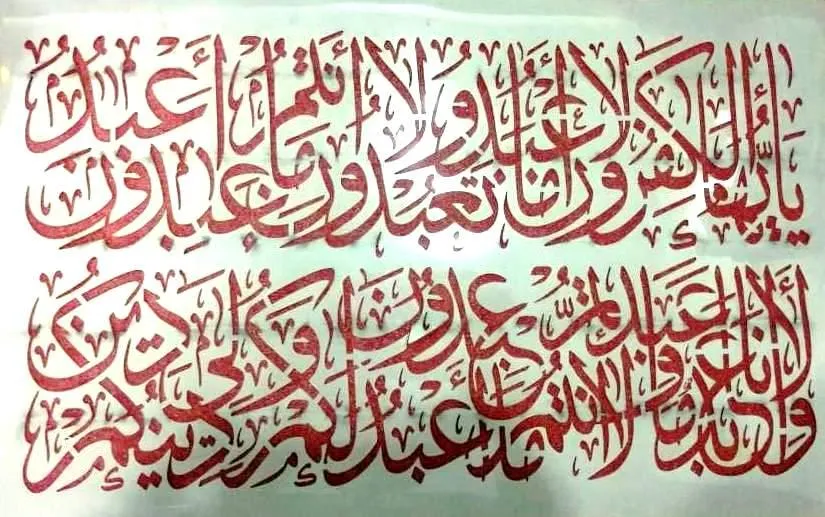 يَا أَيُّهَا الْكَفِرُونَ لَا أَعْبُدُ مَا تَعْبُدُونَ وَلَا أَنتُمْ عَبِدُونَ مَا أَعْبُدُ
وَلَا أَنَا عَابِدٌ مَا عَبَدتُّمْ وَلَا أَنتُمْ عَبِدُونَ مَا أَعْبُدُ لَكُمْ دِينُكُمْ وَلِيَ دِينِ